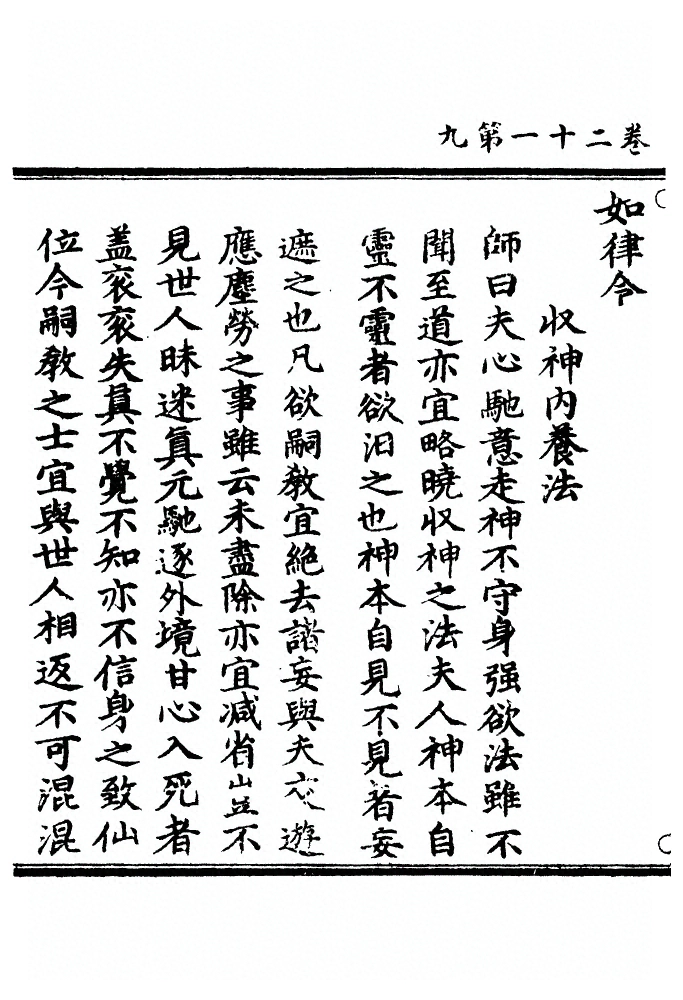 卷二十一第九
如律令
収神內養法
師曰夫心馳意走神不守身强欲法雖不
聞至道亦宜略曉収神之法夫人神本自
靈不靈者欲汩之也神本自見不見者妄
遮之也凡欲嗣教宜絕去諸妄與夫交遊
應塵勞之事雖云未盡除亦宜减省山並不
見世人昧迷眞元馳逐外境甘心入死者
盖衮衮失眞不覺不知亦不信身之致仙
位今嗣教之士宜與世人相返不可混混